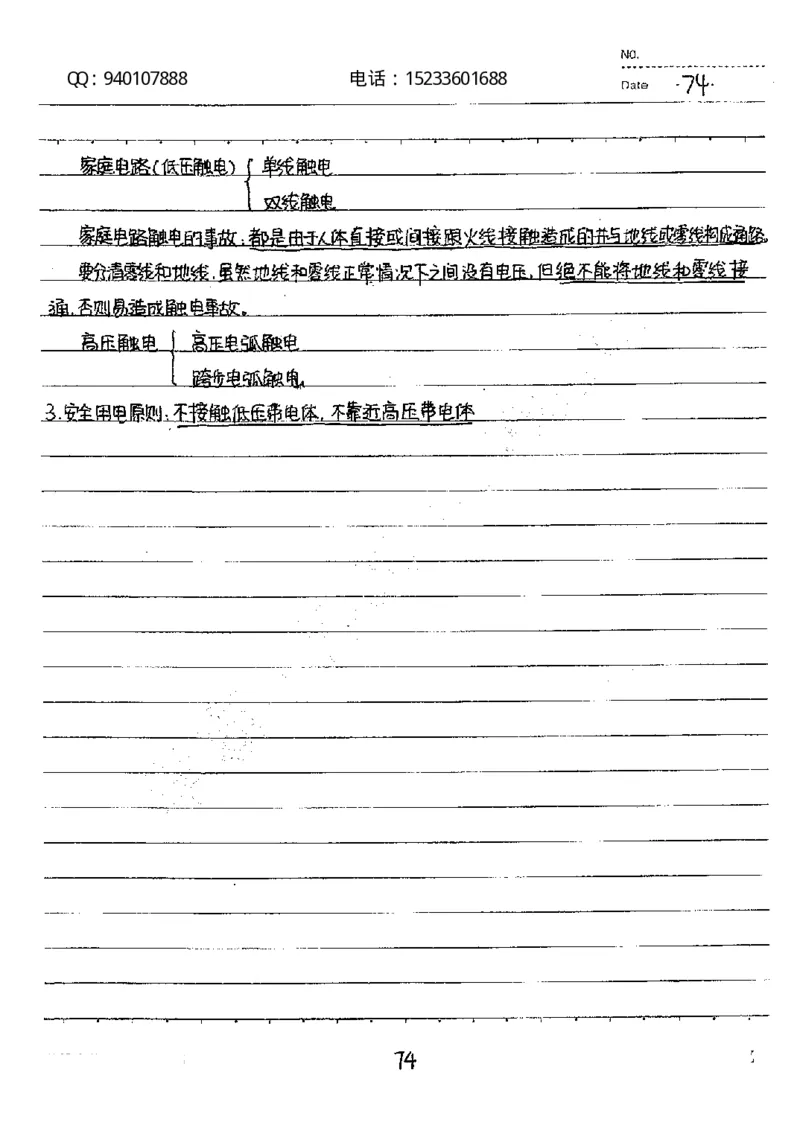 NO.
QQ：940107888 电话：15233601688
Date ·74·
家庭电路(低压触电) { 单线触电
双线触电
家庭电路触电的事故：都是由于人体直接或间接跟火线接触造成的并与地线或零线构成通路。
要分清零线和地线，虽然地线和零线正常情况下之间没有电压，但绝不能将地线和零线接
通，否则易造成触电事故。
高压触电 { 高压电弧触电
跨步电弧触电
3.安全用电原则：不接触低压带电体，不靠近高压带电体
74